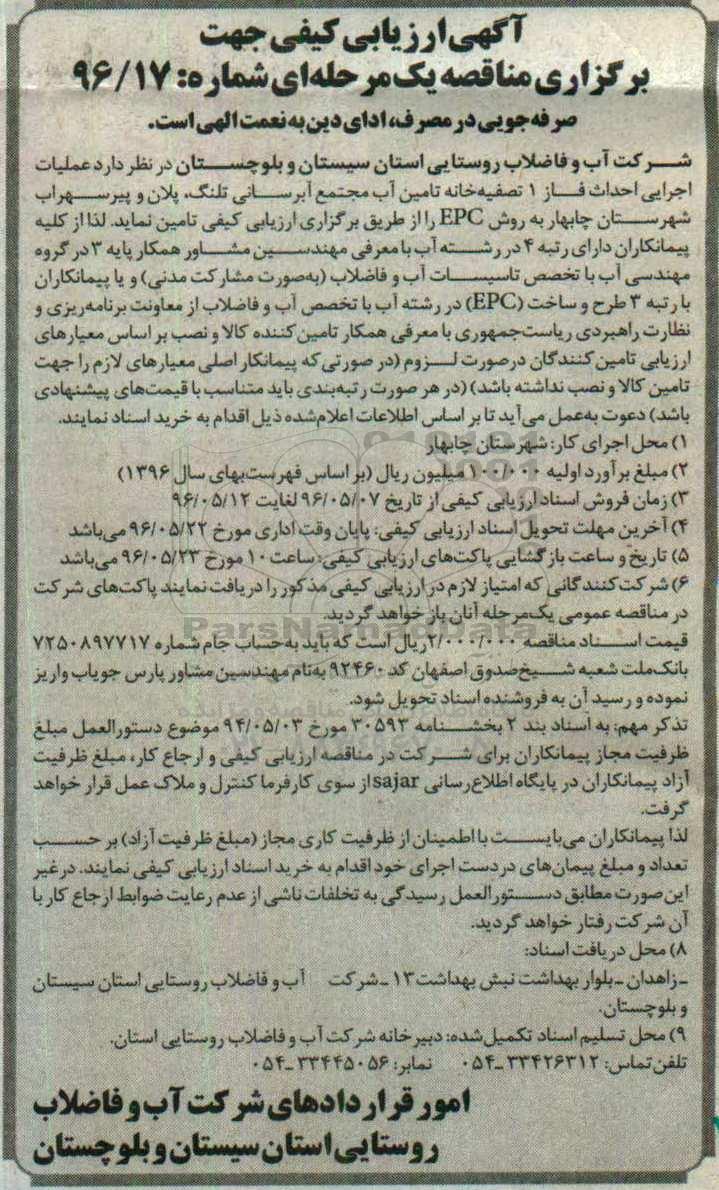 آگهی ارزیابی کیفی جهت
برگزاری مناقصه یک مرحله‌ای شماره: ۹۶/۱۷
صرفه‌جویی در مصرف، ادای دین به نعمت الهی است.
شرکت آب و فاضلاب روستایی استان سیستان و بلوچستان در نظر دارد عملیات
اجرایی احداث فاز ۱ تصفیه‌خانه تامین آب مجتمع آبرسانی تلنگ، پلان و پیرسهراب
شهرستان چابهار به روش EPC را از طریق برگزاری ارزیابی کیفی تامین نماید. لذا از کلیه
پیمانکاران دارای رتبه ۴ در رشته آب با معرفی مهندسین مشاور همکار پایه ۳ در گروه
مهندسی آب با تخصص تاسیسات آب و فاضلاب (به‌صورت مشارکت مدنی) و یا پیمانکاران
با رتبه ۳ طرح و ساخت (EPC) در رشته آب با تخصص آب و فاضلاب از معاونت برنامه‌ریزی و
نظارت راهبردی ریاست‌جمهوری با معرفی همکار تامین‌کننده کالا و نصب بر اساس معیارهای
ارزیابی تامین‌کنندگان درصورت لزوم (در صورتی‌که پیمانکار اصلی معیارهای لازم را جهت
تامین کالا و نصب نداشته باشد) (در هر صورت رتبه‌بندی باید متناسب با قیمت‌های پیشنهادی
باشد) دعوت به‌عمل می‌آید تا بر اساس اطلاعات اعلام‌شده ذیل اقدام به خرید اسناد نمایند.
۱) محل اجرای کار: شهرستان چابهار
۲) مبلغ برآورد اولیه ۱۰۰/۰۰۰ میلیون ریال (بر اساس فهرست‌بهای سال ۱۳۹۶)
۳) زمان فروش اسناد ارزیابی کیفی از تاریخ ۹۶/۰۵/۰۷ لغایت ۹۶/۰۵/۱۲
۴) آخرین مهلت تحویل اسناد ارزیابی کیفی: پایان وقت اداری مورخ ۹۶/۰۵/۲۲ می‌باشد
۵) تاریخ و ساعت بازگشایی پاکت‌های ارزیابی کیفی: ساعت ۱۰ مورخ ۹۶/۰۵/۲۳ می‌باشد
۶) شرکت‌کنندگانی که امتیاز لازم در ارزیابی کیفی مذکور را دریافت نمایند پاکت‌های شرکت
در مناقصه عمومی یک‌مرحله آنان باز خواهد گردید.
قیمت اسناد مناقصه ۲/۰۰۰/۰۰۰ ریال است که باید به‌حساب جام شماره ۷۲۵۰۸۹۷۷۱۷
بانک‌ملت شعبه شیخ‌صدوق اصفهان کد ۹۲۴۶۰ به‌نام مهندسین مشاور پارس جویاب واریز
نموده و رسید آن به فروشنده اسناد تحویل شود.
تذکر مهم: به اسناد بند ۲ بخشنامه ۳۰۵۹۳ مورخ ۹۴/۰۵/۰۳ موضوع دستورالعمل مبلغ
ظرفیت مجاز پیمانکاران برای شرکت در مناقصه ارزیابی کیفی و ارجاع کار، مبلغ ظرفیت
آزاد پیمانکاران در پایگاه اطلاع‌رسانی sajar از سوی کارفرما کنترل و ملاک عمل قرار خواهد
گرفت.
لذا پیمانکاران می‌بایست با اطمینان از ظرفیت کاری مجاز (مبلغ ظرفیت آزاد) بر حسب
تعداد و مبلغ پیمان‌های در دست اجرای خود اقدام به خرید اسناد ارزیابی کیفی نمایند. درغیر
این صورت مطابق دستورالعمل رسیدگی به تخلفات ناشی از عدم رعایت ضوابط ارجاع کار با
آن شرکت رفتار خواهد گردید.
۸) محل دریافت اسناد:
ـ زاهدان ـ بلوار بهداشت نبش بهداشت ۱۳ ـ شرکت آب و فاضلاب روستایی استان سیستان
و بلوچستان.
۹) محل تسلیم اسناد تکمیل‌شده: دبیرخانه شرکت آب و فاضلاب روستایی استان.
تلفن تماس: ۳۳۴۲۶۳۱۲ ـ ۰۵۴ نمابر: ۳۳۴۴۵۰۵۶ ـ ۰۵۴
امور قراردادهای شرکت آب و فاضلاب
روستایی استان سیستان و بلوچستان